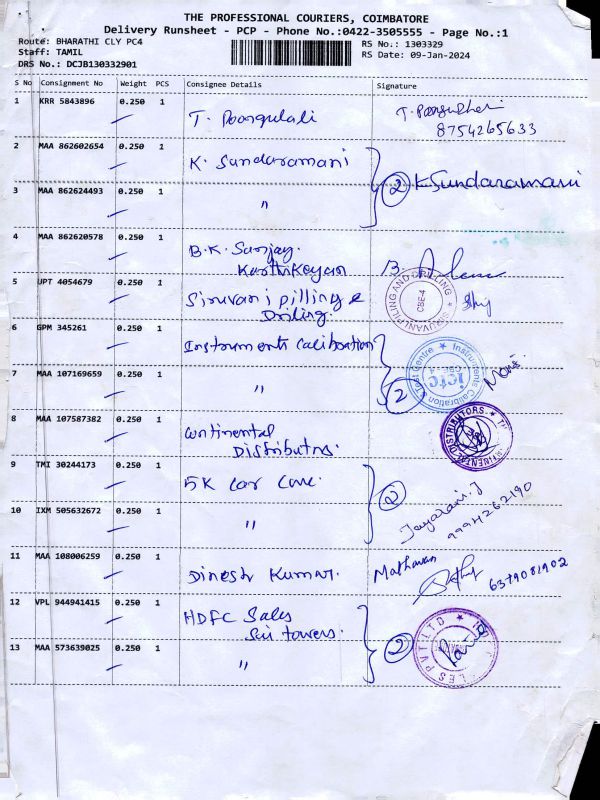 THE PROFESSIONAL COURIERS, COIMBATORE
Delivery Runsheet - PCP - Phone No.:0422-3505555 - Page No.:1
Route: BHARATHI CLY PC4
RS No.: 1303329
Staff: TAMIL
RS Date: 09-Jan-2024
DRS No.: DCJB130332901
S No Consignment No Weight PCS Consignee Details Signature
1 KRR 5843896 0.250 1 T. Poongulali
8754265633
2 MAA 862602654 0.250 1 K. Sundaramani
2 K Sundaramani
3 MAA 862624493 0.250 1 "
4 MAA 862620578 0.250 1 B.K. Sanjay.
Karthikeyan
5 UPT 4054679 0.250 1 Siruvani pilling &
Driling.
SIRUVANI PILING AND DRILLING
CBE-4
6 GPM 345261 0.250 1 Instruments calibration
Instruments Calibration Test Centre
ictc
7 MAA 107169659 0.250 1 "
2 Mani
8 MAA 107587382 0.250 1 Continental
Distributrs.
CONTINENTAL DISTRIBUTORS
9 TMI 30244173 0.250 1 5K Car Care.
2
10 IXM 505632672 0.250 1 "
Jayaram. J
9994262190
11 MAA 108006259 0.250 1 Dinesh Kumar.
Mathavan
6379081902
12 VPL 944941415 0.250 1 HDFC Sales
Sri towers.
13 MAA 573639025 0.250 1 "
2
LES PVT LTD